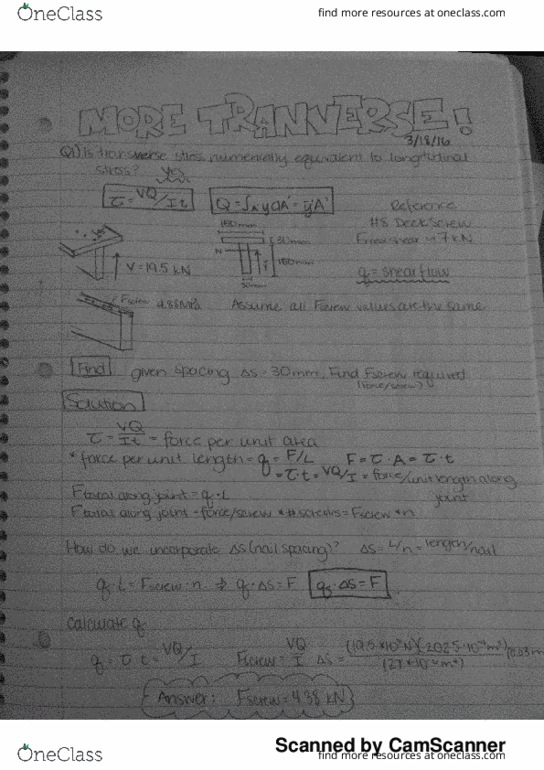 OneClass
find more resources at oneclass.com
MORE TRANVERSE!
3/18/16
Q1) Is transverse stress numerically equivalent to longitudinal
stress? yes.
τ = VQ/It
Q = ∫A' y dA' = ȳA'
Reference
#8 Deck Screw
150mm
30mm
N
150mm
30mm
V = 19.5 kN
q = shear flow
Fscrew 4.88MPa
Assume all Fscrew values are the same
Find given spacing Δs = 30mm, Find Fscrew required
(force/screw)
Solution
τ = VQ/It = force per unit area
*force per unit length = q = F/L F = τ·A = τ·t
= τ·t = VQ/I = force/unit length along
joint
Ftotal along joint = q·L
Ftotal along joint = force/screw * # screws = Fscrew * n
How do we incorporate Δs (nail spacing)? Δs = L/n = length/nail
q·L = Fscrew·n ⇒ q·Δs = F q·Δs = F
Calculate q
q = τ·t = VQ/I Fscrew = VQ/I Δs =
Answer: Fscrew = 4.38 kN
Scanned by CamScanner
OneClass
find more resources at oneclass.com